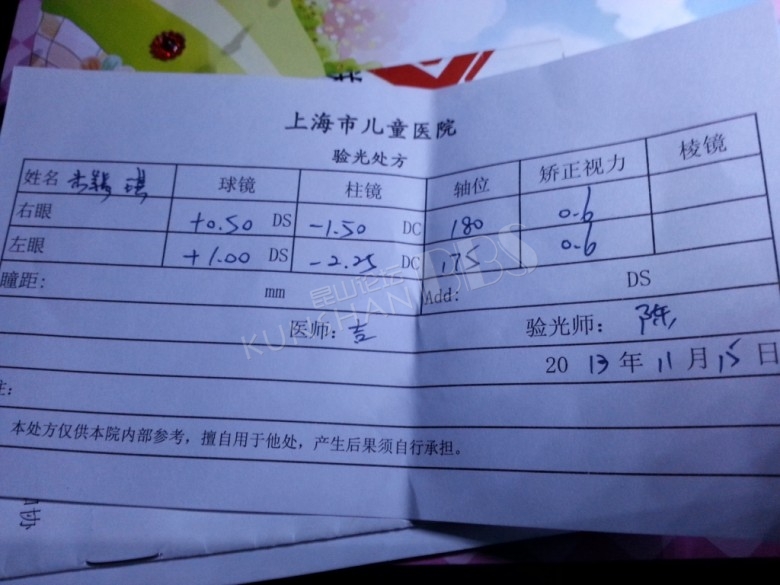 上海市儿童医院
验光处方
姓名 球镜 柱镜 轴位 矫正视力 棱镜
右眼 +0.50 DS -1.50 DC 180 0.6
左眼 +1.00 DS -2.25 DC 175 0.6
瞳距: mm Add: DS
医师: 吉 验光师: 陈
2013年11月15日
注:
本处方仅供本院内部参考，擅自用于他处，产生后果须自行承担。
昆山论坛
KUNSHAN BBS
协